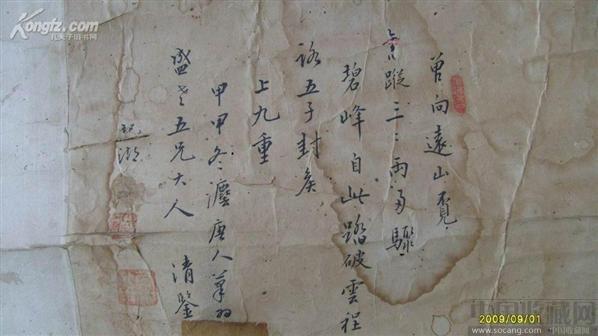 曾向遠山覓
蹤三三兩多驟
碧峰自此踏破雲程
路五子封矦
上九重
甲甲冬 唐人筆
盛 五兄大人
清鑒
Kongfz.com
孔夫子旧书网
2009/09/01
中国收藏网
www.socang.com